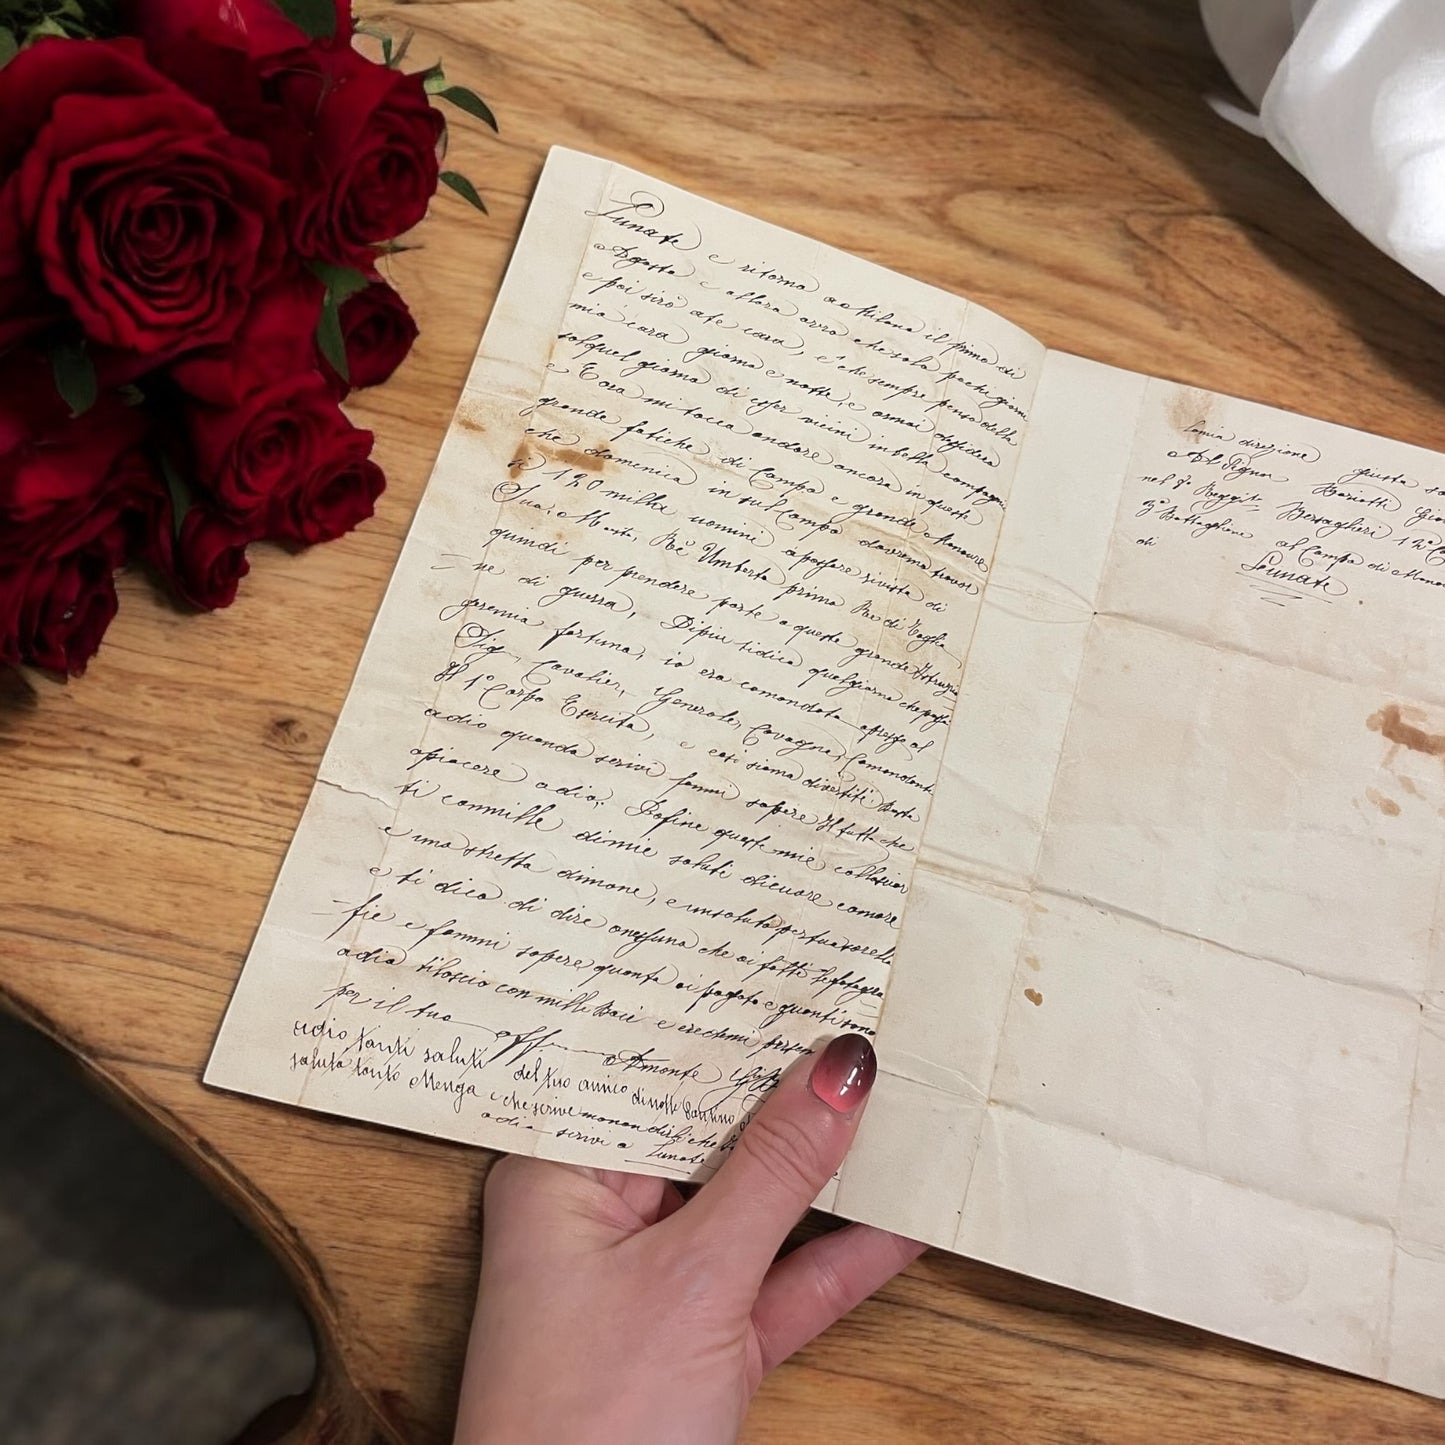 Lunate e ritorna a Milano il primo di
Agosto e allora avrò che sola pochi giorni
e poi sirò ate cara, e che sempre penso della
mia cara giorno e notte, e ormai desidera
sol quel giorno di esser vicini in bella compagnia
e Cora mi tocca andare ancora in queste
grande fatiche di Campo e grande Manovre
che domenica in sul Campo doverema trovar
si 120 milla uomini a passare rivista di
Sua, Maestà, Rè Umberto primo Re di Itaglia,
quindi per prendere parte a queste grande Istruzio=
=ne di guerra, Dipiu ti dico qualgiorno che passa
premia fortuna, io era comandata apresso al
Sig, Cavalier, Generale, Cavagna, Comandante
Il 1º Corpo Esercito, e così siamo divertiti. Basta
adio quando scrivi fammi sapere Il tutto che
apiacere adio; Dofine queste mie
ti con mille di mie saluti di cuore e amore
e una stretta dimone, e un saluto per tua sorella
e ti dico di dire a che ai fatti le fotogra=
=fie e fammi sapere quanto ai pagato e quanti sono
adio ti lascio con mille Baci e credemi per sem
per il tuo aff Amonte
adio tanti saluti del tuo amico
saluta tanto Menga e che scrive
adio scrivi a Lunate
la mia direzione giusta
Al Signor Bariatti
nel 7º Reggito Bersaglieri 12º
3º Battaglione al Campo di
di Lounate